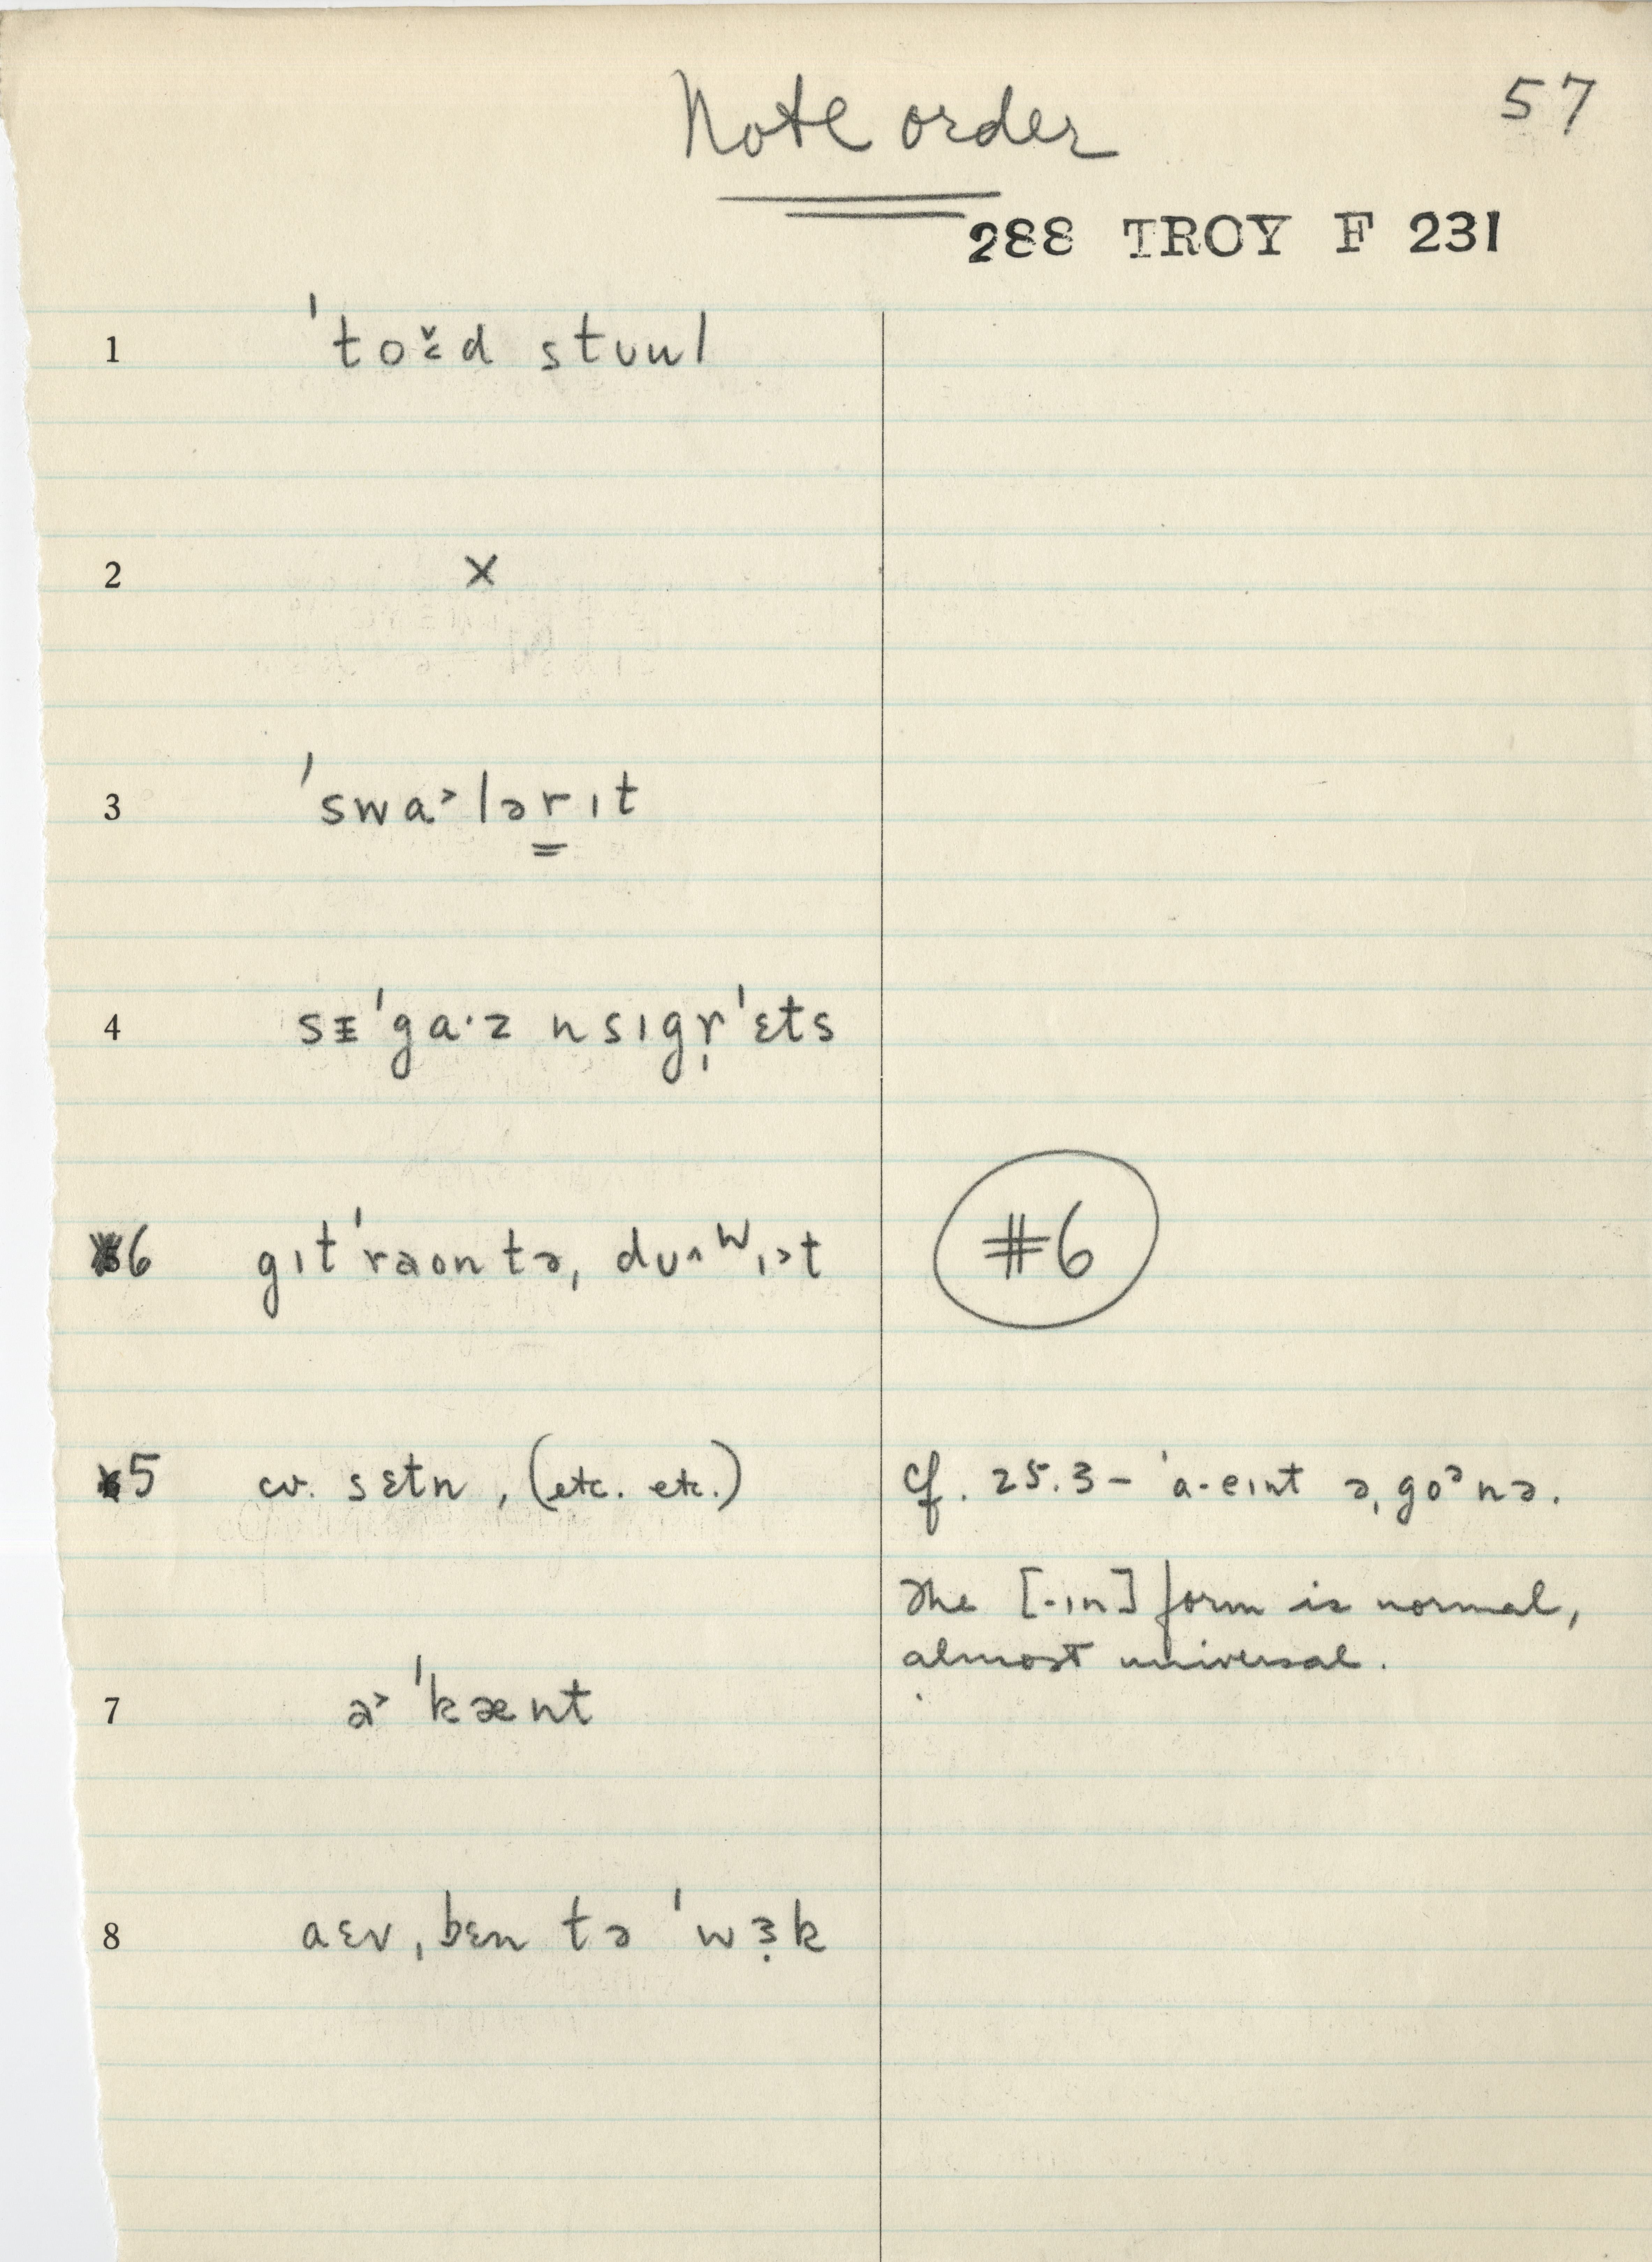 57
Note order
288 TROY F 231
1 ˈtoɚ̆d stuul
2 x
3 ˈswa˃lərɪt
4 sɪˈga·z nsɪgr̩ˈɛts
6 gɪtˈraontə, dʊ^ʷɪ˃t
#6
5 cv. sɛtn, (etc. etc.)
cf. 25.3 – ˈa·eɪnt əˌgoᵊnə.
The [-ɪn] form is normal,
almost universal.
7 ə˃ ˈkænt
8 aɛvˌbɛn tə ˈwɜ̣k